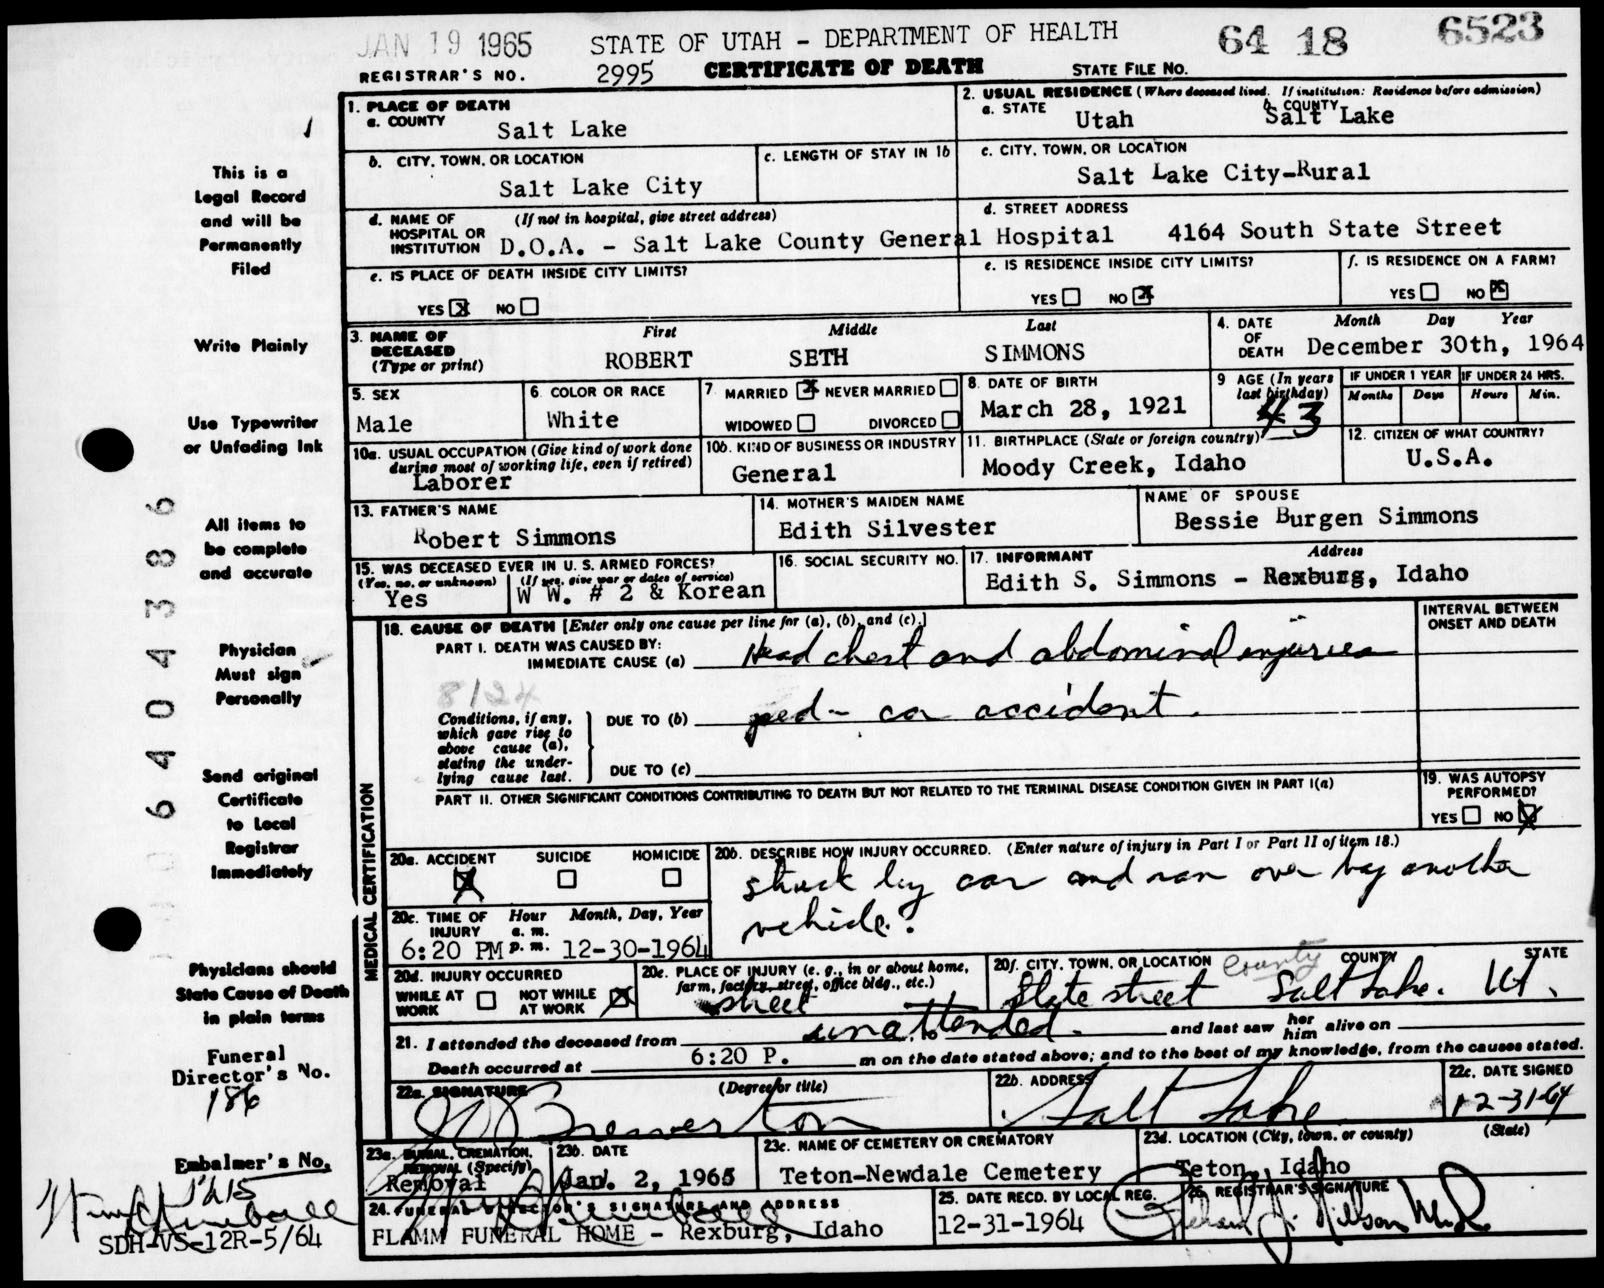 JAN 19 1965 STATE OF UTAH - DEPARTMENT OF HEALTH 64 18 6523
REGISTRAR'S NO. 2995 CERTIFICATE OF DEATH STATE FILE NO.
1
This is a
Legal Record
and will be
Permanently
Filed
Write Plainly
Use Typewriter
or Unfading Ink
All items to
be complete
and accurate
Physician
Must sign
Personally
Send original
Certificate
to Local
Registrar
Immediately
Physicians should
State Cause of Death
in plain terms
Funeral
Director's No.
186
Embalmer's No.
1215
SDH-VS-12R-5/64
64 04386
1. PLACE OF DEATH
a. COUNTY Salt Lake
2. USUAL RESIDENCE (Where deceased lived. If institution: Residence before admission)
a. STATE Utah b. COUNTY Salt Lake
b. CITY, TOWN, OR LOCATION Salt Lake City
c. LENGTH OF STAY IN 1b
c. CITY, TOWN, OR LOCATION Salt Lake City-Rural
d. NAME OF HOSPITAL OR INSTITUTION (If not in hospital, give street address)
D.O.A. - Salt Lake County General Hospital
d. STREET ADDRESS 4164 South State Street
e. IS PLACE OF DEATH INSIDE CITY LIMITS?
YES X NO
e. IS RESIDENCE INSIDE CITY LIMITS?
YES NO X
f. IS RESIDENCE ON A FARM?
YES NO X
3. NAME OF DECEASED (Type or print) First Middle Last
ROBERT SETH SIMMONS
4. DATE OF DEATH Month Day Year
December 30th, 1964
5. SEX Male
6. COLOR OR RACE White
7. MARRIED X NEVER MARRIED
WIDOWED DIVORCED
8. DATE OF BIRTH March 28, 1921
9 AGE (In years last birthday) 43
IF UNDER 1 YEAR Months Days
IF UNDER 24 HRS. Hours Min.
10a. USUAL OCCUPATION (Give kind of work done during most of working life, even if retired)
Laborer
10b. KIND OF BUSINESS OR INDUSTRY
General
11. BIRTHPLACE (State or foreign country)
Moody Creek, Idaho
12. CITIZEN OF WHAT COUNTRY?
U.S.A.
13. FATHER'S NAME
Robert Simmons
14. MOTHER'S MAIDEN NAME
Edith Silvester
NAME OF SPOUSE
Bessie Burgen Simmons
15. WAS DECEASED EVER IN U. S. ARMED FORCES?
(Yes, no, or unknown) (If yes, give war or dates of service)
Yes W W. # 2 & Korean
16. SOCIAL SECURITY NO.
17. INFORMANT Address
Edith S. Simmons - Rexburg, Idaho
MEDICAL CERTIFICATION
18. CAUSE OF DEATH [Enter only one cause per line for (a), (b), and (c).]
INTERVAL BETWEEN ONSET AND DEATH
PART I. DEATH WAS CAUSED BY:
IMMEDIATE CAUSE (a) Head chest and abdominal injuries
8124
Conditions, if any, which gave rise to above cause (a), stating the underlying cause last.
DUE TO (b) ped - car accident.
DUE TO (c)
PART II. OTHER SIGNIFICANT CONDITIONS CONTRIBUTING TO DEATH BUT NOT RELATED TO THE TERMINAL DISEASE CONDITION GIVEN IN PART I(a)
19. WAS AUTOPSY PERFORMED?
YES NO X
20a. ACCIDENT SUICIDE HOMICIDE
X
20b. DESCRIBE HOW INJURY OCCURRED. (Enter nature of injury in Part I or Part II of item 18.)
struck by car and ran over by another
vehicle.
20c. TIME OF INJURY Hour a. m. p. m. Month, Day, Year
6:20 PM 12-30-1964
20d. INJURY OCCURRED
WHILE AT WORK NOT WHILE AT WORK X
20e. PLACE OF INJURY (e. g., in or about home, farm, factory, street, office bldg., etc.)
street
20f. CITY, TOWN, OR LOCATION COUNTY STATE
County
State street Salt Lake. Ut.
21. I attended the deceased from unattended. to and last saw her him alive on
Death occurred at 6:20 P. m on the date stated above; and to the best of my knowledge, from the causes stated.
22a. SIGNATURE (Degree or title)
Brewerton
22b. ADDRESS
Salt Lake
22c. DATE SIGNED
12-31-64
23a. BURIAL, CREMATION, REMOVAL (Specify)
Removal
23b. DATE
Jan. 2, 1965
23c. NAME OF CEMETERY OR CREMATORY
Teton-Newdale Cemetery
23d. LOCATION (City, town, or county) (State)
Teton, Idaho
24. FUNERAL DIRECTOR'S SIGNATURE AND ADDRESS
FLAMM FUNERAL HOME - Rexburg, Idaho
25. DATE RECD. BY LOCAL REG.
12-31-1964
26. REGISTRAR'S SIGNATURE